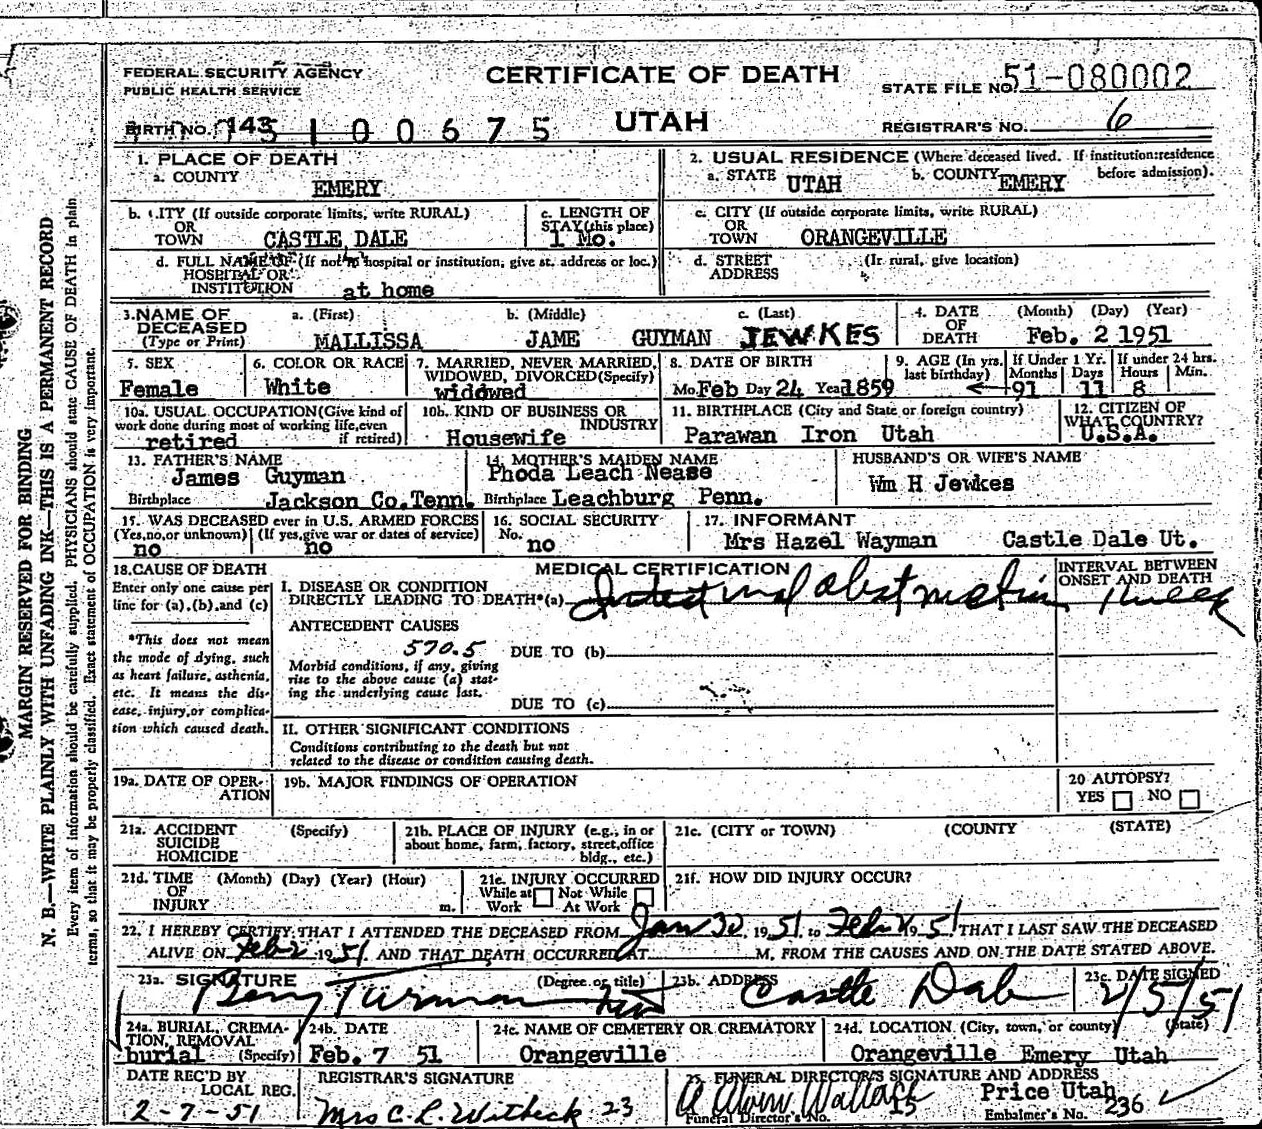 FEDERAL SECURITY AGENCY
PUBLIC HEALTH SERVICE
CERTIFICATE OF DEATH
UTAH
STATE FILE NO. 51-080002
REGISTRAR'S NO. 6
BIRTH NO. 143 5100675
1. PLACE OF DEATH
a. COUNTY
EMERY
2. USUAL RESIDENCE (Where deceased lived. If institution:residence before admission).
a. STATE UTAH b. COUNTY EMERY
b. CITY (If outside corporate limits, write RURAL)
OR
TOWN CASTLE DALE
c. LENGTH OF
STAY (this place)
1 Mo.
c. CITY (If outside corporate limits, write RURAL)
OR
TOWN ORANGEVILLE
d. FULL NAME OF (If not in hospital or institution, give st. address or loc.)
HOSPITAL OR
INSTITUTION at home
d. STREET (If rural, give location)
ADDRESS
3. NAME OF a. (First) b. (Middle) c. (Last)
DECEASED
(Type or Print) MALLISSA JAME GUYMAN JEWKES
4. DATE (Month) (Day) (Year)
OF
DEATH Feb. 2 1951
5. SEX
Female
6. COLOR OR RACE
White
7. MARRIED, NEVER MARRIED,
WIDOWED, DIVORCED (Specify)
widowed
8. DATE OF BIRTH
Mo. Feb Day 24 Year 1859
9. AGE (In yrs. last birthday) If Under 1 Yr. If under 24 hrs.
Months Days Hours Min.
91 11 8
10a. USUAL OCCUPATION (Give kind of
work done during most of working life, even
if retired)
retired
10b. KIND OF BUSINESS OR
INDUSTRY
Housewife
11. BIRTHPLACE (City and State or foreign country)
Parawan Iron Utah
12. CITIZEN OF
WHAT COUNTRY?
U.S.A.
13. FATHER'S NAME
James Guyman
Birthplace Jackson Co. Tenn.
14. MOTHER'S MAIDEN NAME
Phoda Leach Nease
Birthplace Leachburg Penn.
HUSBAND'S OR WIFE'S NAME
Wm H Jewkes
15. WAS DECEASED ever in U.S. ARMED FORCES
(Yes, no, or unknown) (If yes, give war or dates of service)
no no
16. SOCIAL SECURITY
No.
no
17. INFORMANT
Mrs Hazel Wayman Castle Dale Ut.
18. CAUSE OF DEATH
Enter only one cause per
line for (a), (b), and (c)
*This does not mean
the mode of dying, such
as heart failure, asthenia,
etc. It means the dis-
ease, injury, or complica-
tion which caused death.
MEDICAL CERTIFICATION
I. DISEASE OR CONDITION
DIRECTLY LEADING TO DEATH*(a) Intestinal obstruction
INTERVAL BETWEEN
ONSET AND DEATH
1 week
ANTECEDENT CAUSES
570.5 DUE TO (b)
Morbid conditions, if any, giving
rise to the above cause (a) stat-
ing the underlying cause last.
DUE TO (c)
II. OTHER SIGNIFICANT CONDITIONS
Conditions contributing to the death but not
related to the disease or condition causing death.
19a. DATE OF OPER-
ATION
19b. MAJOR FINDINGS OF OPERATION
20 AUTOPSY?
YES NO
21a. ACCIDENT (Specify)
SUICIDE
HOMICIDE
21b. PLACE OF INJURY (e.g., in or
about home, farm, factory, street, office
bldg., etc.)
21c. (CITY or TOWN) (COUNTY) (STATE)
21d. TIME (Month) (Day) (Year) (Hour)
OF
INJURY m.
21e. INJURY OCCURRED
While at Not While
Work At Work
21f. HOW DID INJURY OCCUR?
22. I HEREBY CERTIFY THAT I ATTENDED THE DECEASED FROM Jan 30, 1951, to Feb 2, 1951 THAT I LAST SAW THE DECEASED
ALIVE ON Feb 2 1951. AND THAT DEATH OCCURRED AT M. FROM THE CAUSES AND ON THE DATE STATED ABOVE.
23a. SIGNATURE (Degree or title)
Turman
23b. ADDRESS
Castle Dale
23c. DATE SIGNED
2/5/51
24a. BURIAL, CREMA-
TION, REMOVAL
burial (Specify)
24b. DATE
Feb. 7 51
24c. NAME OF CEMETERY OR CREMATORY
Orangeville
24d. LOCATION (City, town, or county) (State)
Orangeville Emery Utah
DATE REC'D BY
LOCAL REG.
2-7-51
REGISTRAR'S SIGNATURE
Mrs C. L. Witbeck 23
25. FUNERAL DIRECTOR'S SIGNATURE AND ADDRESS
Wallace Price Utah
Funeral Director's No. 15 Embalmer's No. 236
MARGIN RESERVED FOR BINDING
N. B.—WRITE PLAINLY WITH UNFADING INK—THIS IS A PERMANENT RECORD
Every item of information should be carefully supplied. PHYSICIANS should state CAUSE OF DEATH in plain
terms, so that it may be properly classified. Exact statement of OCCUPATION is very important.